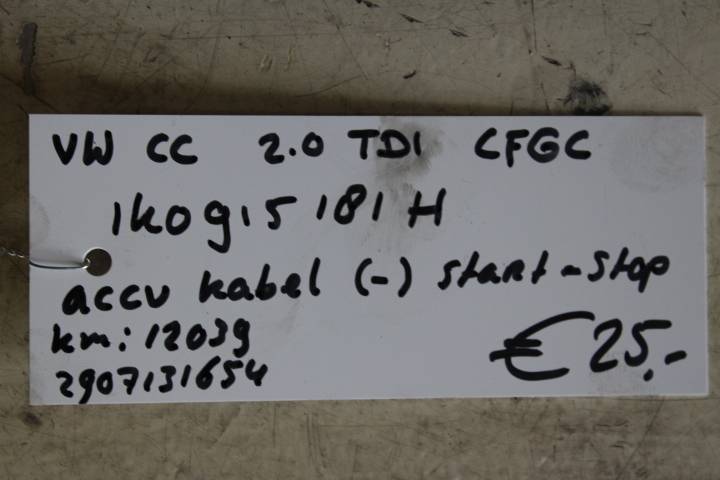 VW CC 2.0 TDI CFGC
1K0915181H
accu kabel (-) start-stop
km: 12039
2907131654
€25,-